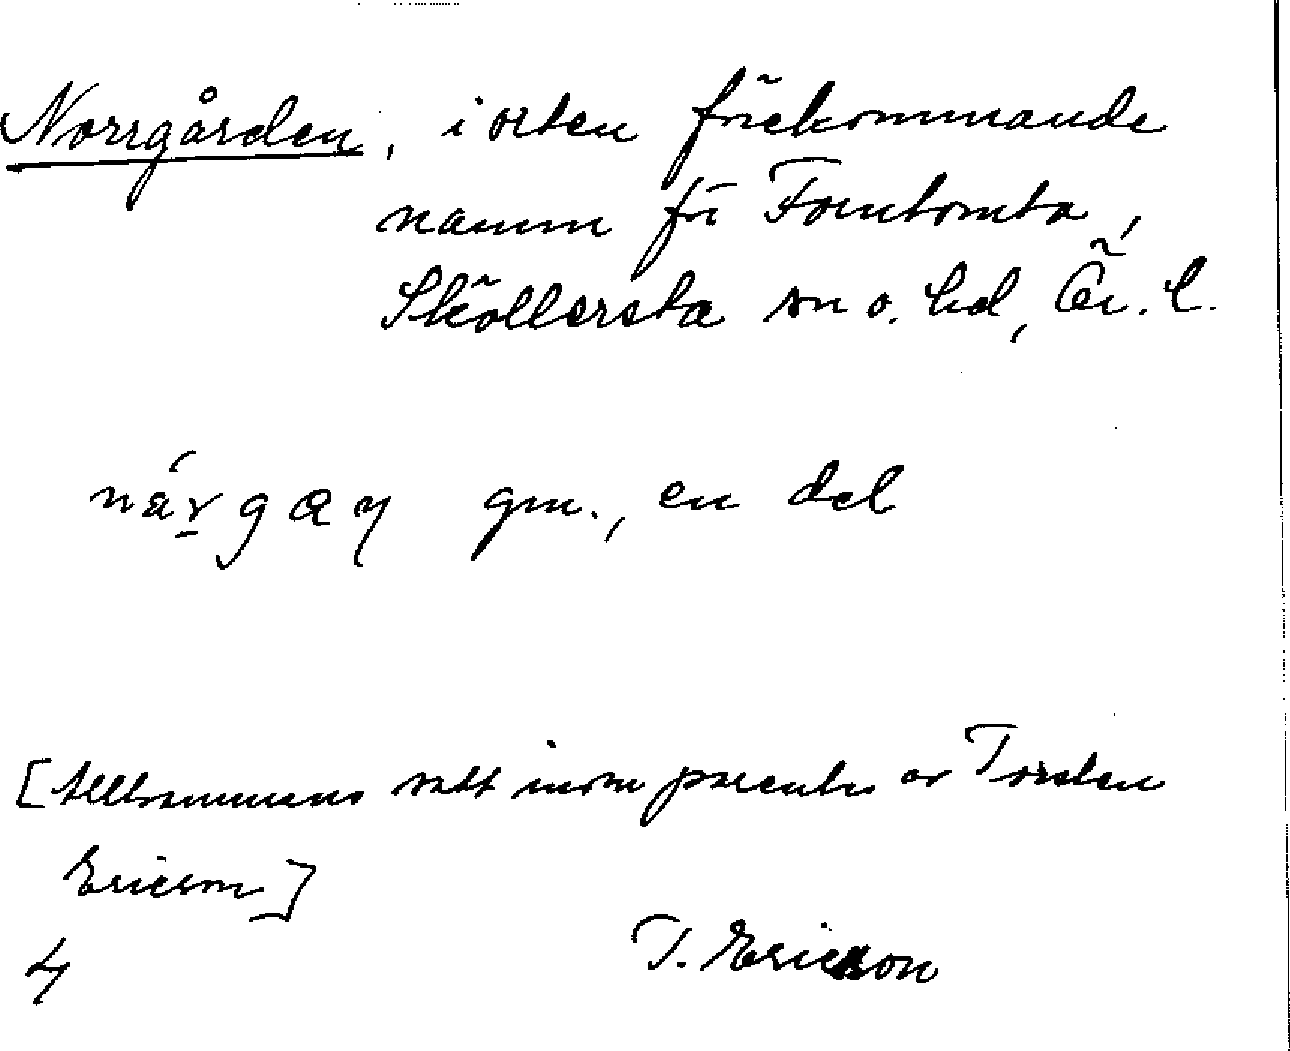 Norrgården, i orten förekommande
namn för Torntomta,
Sköllersta sn o. hd, Ör. l.
gm., en del
[Allt satt inom parentes av Torsten
Ericson]
4 T. Ericsson